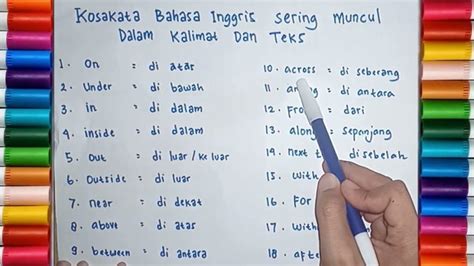 Kosakata Bahasa Inggris sering Muncul
Dalam Kalimat Dan Teks
1. On = di atas
2. Under = di bawah
3. in = di dalam
4. inside = di dalam
5. Out = di luar / ke luar
6. Outside = di luar
7. near = di dekat
8. above = di atas
9. between = di antara
10. across = di seberang
11. = di antara
12. = dari
13. along = sepanjang
14. next disebelah
15. with
16. For
17.
18.